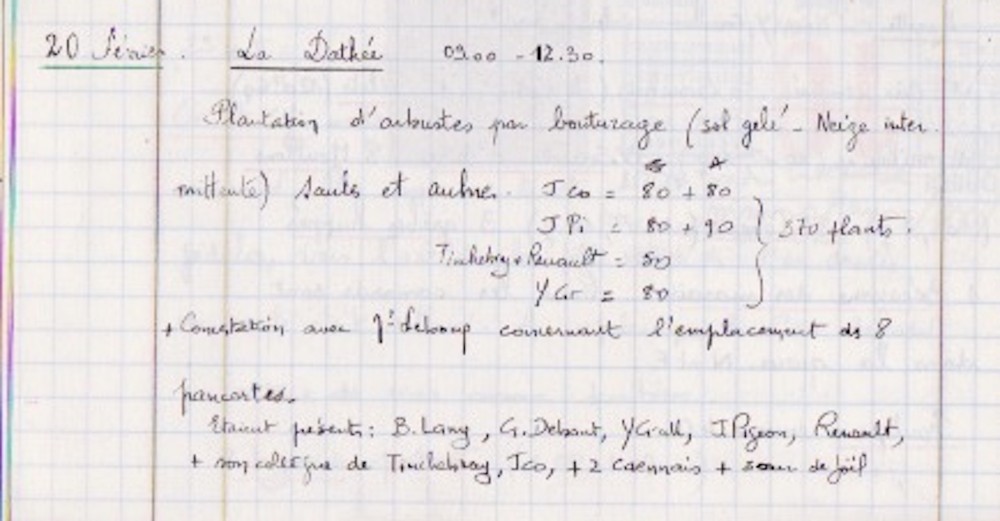 20 Février. La Dathée 09.00 - 12.30.
Plantation d'arbustes par bouturage (sol gelé - Neige inter
S A
mittente) saules et aulne. J Co = 80 + 80
J Pi = 80 + 90 } 370 plants.
Tinchebray + Renault = 50
Y Gr = 80
+ Concertation avec concernant l'emplacement de 8
pancartes.
Etaient présents: B. Lang, G. Debout, Y Grall, J Pigeon, Renault,
+ son collègue de Tinchebray, J Co, + 2 caennais + soeur de Joël